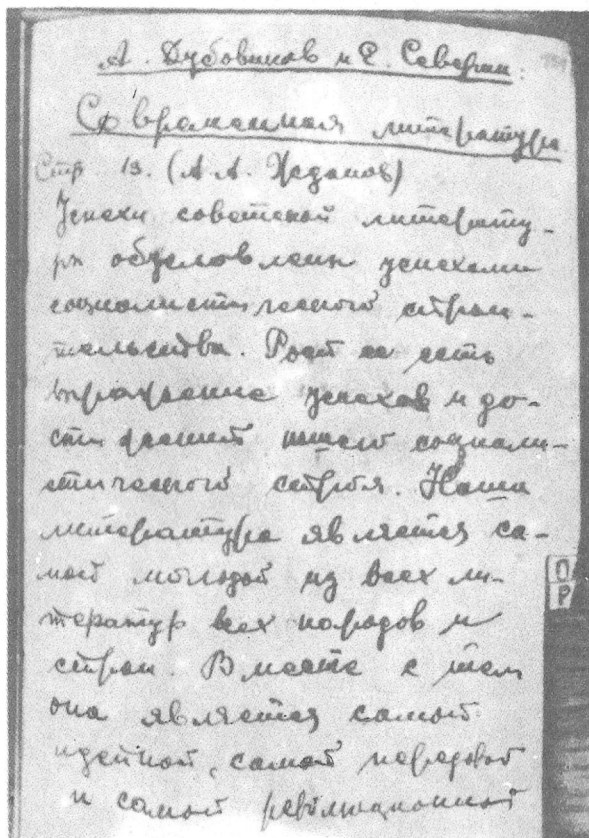 А. Дубовиков и Е. Северин.
Современная литература
Стр 13. (А. А. Жданов)
Успехи советской литерату-
ры обусловлены успехами
социалистического строи-
тельства. Рост ее есть
выражение успехов и до-
стижений нашего социали-
стического строя. Наша
литература является са-
мой молодой из всех ли-
тератур всех народов и
стран. Вместе с тем
она является самой
идейной, самой передовой
и самой революционной
П
Р